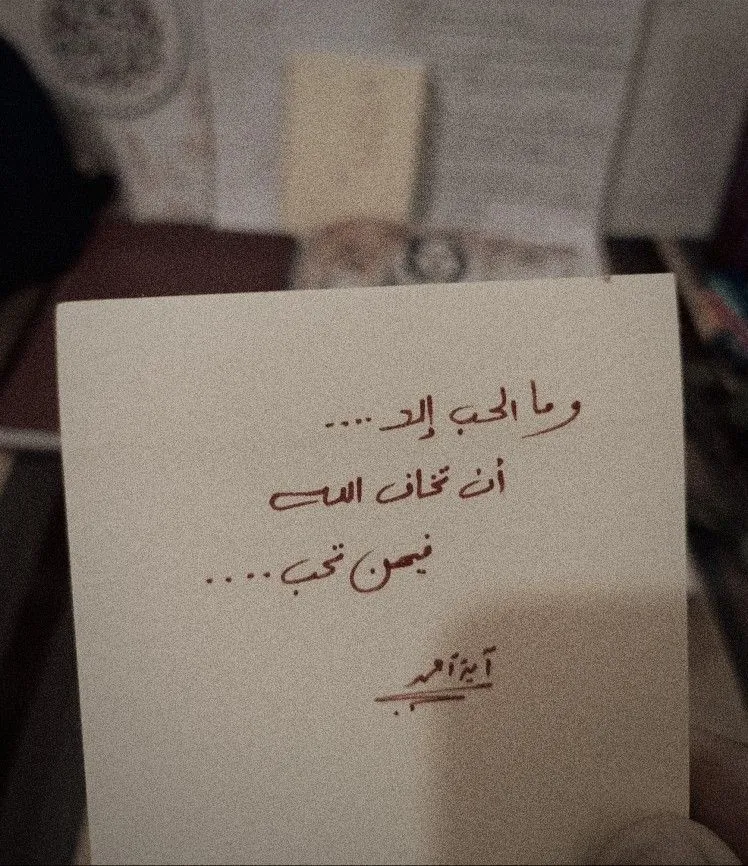 وما الحب إلا ....
أن تخاف الله
فيمن تحب ....
آية أحمد